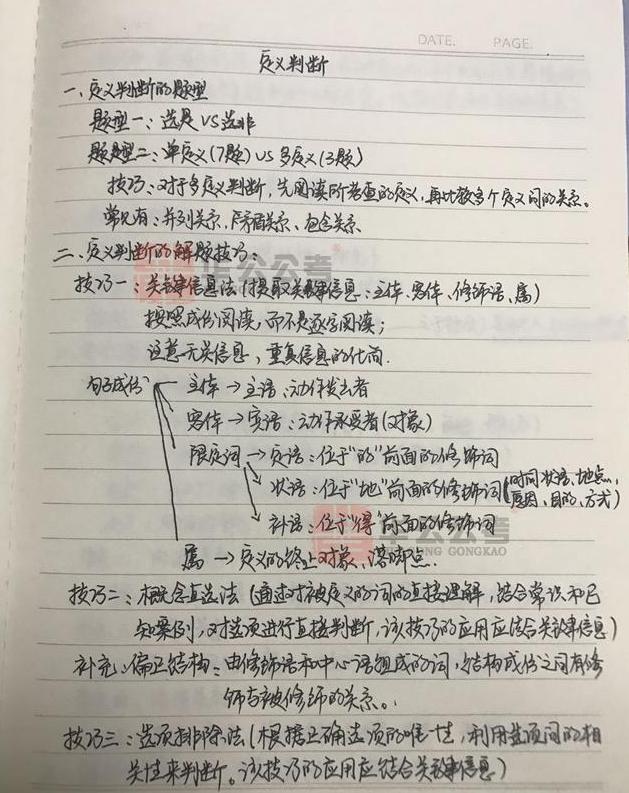 DATE. PAGE.
定义判断
一、定义判断的题型
题型一：选是VS选非
题型二：单定义(7题)VS多定义(3题)
技巧：对于多定义判断，先阅读所考查的定义，再比较多个定义间的关系。
常见有：并列关系、矛盾关系、包含关系
二、定义判断的解题技巧：
华公公考
技巧一：关键信息法(提取关键信息：主体、客体、修饰语、属)
按照成份阅读，而不是逐字阅读；
注意无关信息，重复信息的化简.
句子成份 主体→主语：动作发出者
客体→宾语：动作承受者(对象)
限定词→定语：位于"的"前面的修饰词
状语：位于"地"前面的修饰词(时间状语、地点、原因、目的、方式)
补语：位于"得"前面的修饰词
华公公考
GONGKAO
属→定义的终止对象、落脚点.
技巧二：概念直选法(通过对被定义的词的直接理解，结合常识和已
知案例，对选项进行直接判断，该技巧的应用应结合关键信息)
补充：偏正结构：由修饰语和中心语组成的词，结构成份之间有修
饰与被修饰的关系。
技巧三：选项排除法(根据正确选项的唯一性，利用选项间的相
关性来判断。该技巧的应用应结合关键信息)